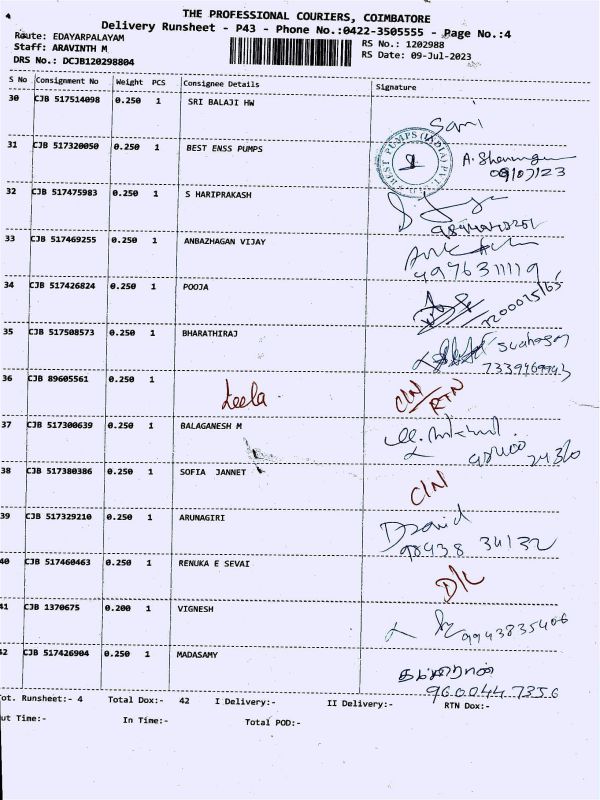 THE PROFESSIONAL COURIERS, COIMBATORE
Delivery Runsheet - P43 - Phone No.:0422-3505555 - Page No.:4
Route: EDAYARPALAYAM
RS No.: 1202988
Staff: ARAVINTH M
RS Date: 09-Jul-2023
DRS No.: DCJB120298804
S No Consignment No Weight PCS Consignee Details Signature
30 CJB 517514098 0.250 1 SRI BALAJI HW
31 CJB 517320050 0.250 1 BEST ENSS PUMPS
BEST PUMPS (INDIA) PVT
09/07/23
32 CJB 517475983 0.250 1 S HARIPRAKASH
33 CJB 517469255 0.250 1 ANBAZHAGAN VIJAY
4976311119
34 CJB 517426824 0.250 1 POOJA
35 CJB 517508573 0.250 1 BHARATHIRAJ
36 CJB 89605561 0.250 1 Leela C/N/RTN
37 CJB 517300639 0.250 1 BALAGANESH M
38 CJB 517380386 0.250 1 SOFIA JANNET C/N
39 CJB 517329210 0.250 1 ARUNAGIRI
David
98438 34132
40 CJB 517460463 0.250 1 RENUKA E SEVAI D/L
41 CJB 1370675 0.200 1 VIGNESH
9943835406
42 CJB 517426904 0.250 1 MADASAMY
9600447356
ot. Runsheet:- 4 Total Dox:- 42 I Delivery:- II Delivery:- RTN Dox:-
ut Time:- In Time:- Total POD:-